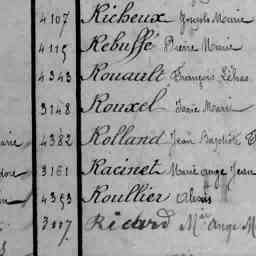 4107 Richeux Joseph Marie
4115 Rebuffé Pierre Marie
4343 Rouault François
3148 Rouxel Marie
4382 Rolland Jean Baptiste
3161 Racinet Marie Ange Jean
4353 Roullier Alexis
Ricard M Ange M